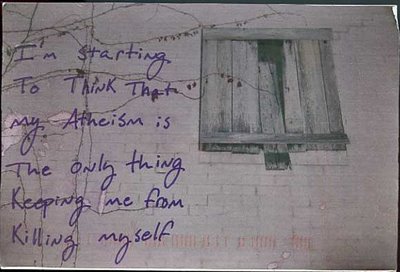 I'm starting
To Think That
my Atheism is
The only thing
Keeping me from
Killing myself